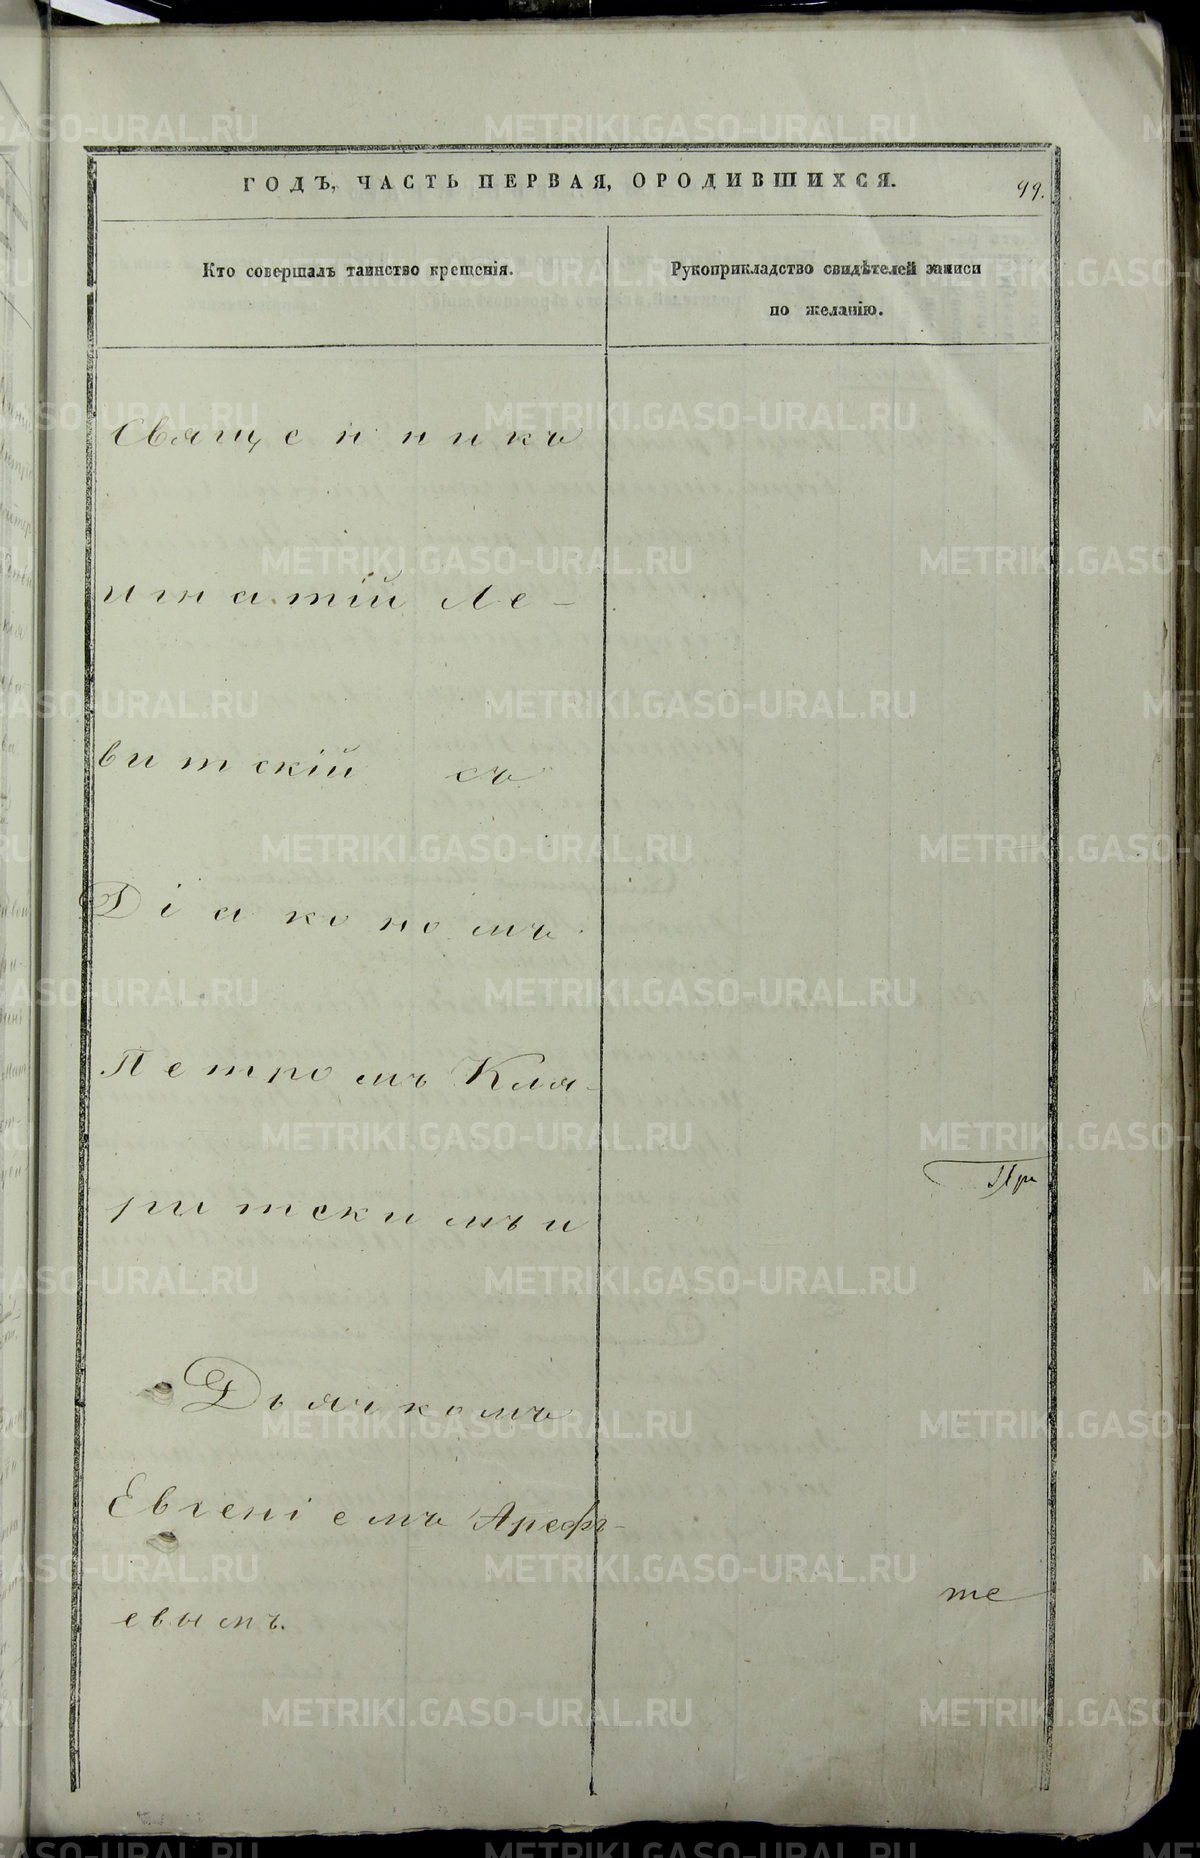 ГОДЪ, ЧАСТЬ ПЕРВАЯ, ОРОДИВШИХСЯ.
99.
Кто совершалъ таинство крещенія.
Рукоприкладство свидѣтелей записи
по желанію.
Священникъ
Игнатій Ле-
витскій съ
Діакономъ
Петромъ Кля-
ритскимъ и
При
Дьячкомъ
Евгеніемъ Арефь-
те
евымъ.
METRIKI.GASO-URAL.RU